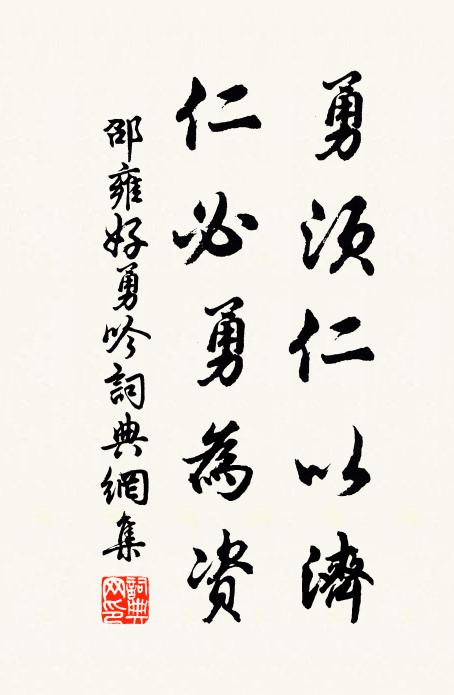 勇須仁以濟
仁必勇為資
邵雍好勇吟詞典網集
詞典網印